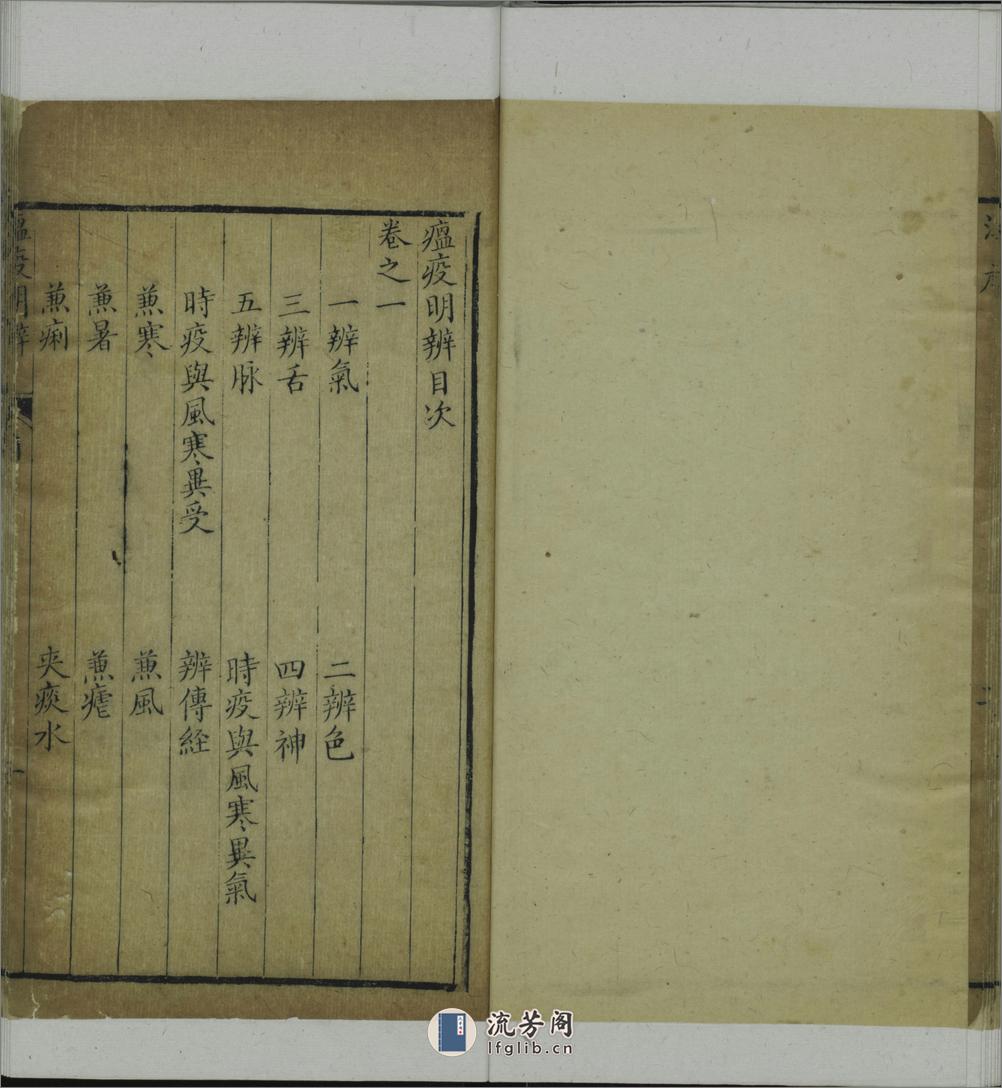 瘟疫明辨目次
卷之一
一辨氣　二辨色
三辨舌　四辨神
五辨脉　時疫與風寒異氣
時疫與風寒異受　辨傳経
兼寒　兼風
兼暑　兼瘧
兼痢　夾痰水
瘟疫明辨
一
流芳阁
lfglib.cn